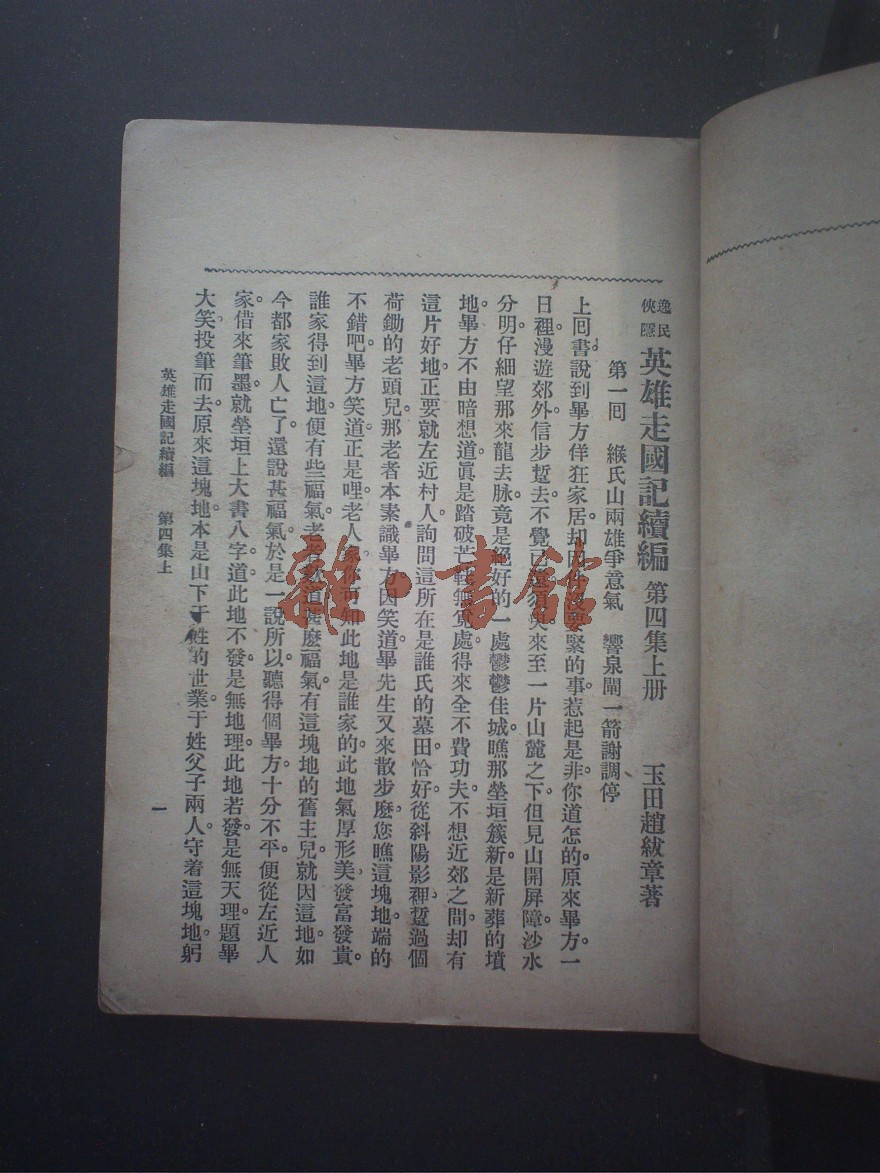 逸民
俠隱
英雄走國記續編 第四集上册 玉田趙紱章著
第一回 緱氏山兩雄爭意氣 響泉閘一箭謝調停
上囘書說到畢方佯狂家居。却因件沒要緊的事。惹起是非。你道怎的。原來畢方。一
日。裡漫遊郊外。信步踅去。不覺已遠。須臾來至一片山麓之下。但見山開屏障。沙水
分明。仔細望那來龍去脉。竟是絕好的一處鬱鬱佳城。瞧那塋垣簇新。是新葬的墳
地。畢方不由暗想道。眞是踏破芒鞋無覓處。得來全不費功夫。不想近郊之間。却有
這片好地。正要就左近村人。詢問這所在是誰氏的墓田。恰好從斜陽影裡。踅過個
荷鋤的老頭兒。那老者本素識畢方。因笑道。畢先生又來散步麼。您瞧這塊地。端的
不錯吧。畢方笑道。正是哩。老人家你可知此地是誰家的。此地氣厚形美。發富發貴。
誰家得到這地。便有些福氣。老者歎道。甚麼福氣。有這塊地的舊主兒。就因這地。如
今都家敗人亡了。還說甚福氣。於是一說所以。聽得個畢方。十分不平。便從左近人
家。借來筆墨。就塋垣上大書八字道。此地不發。是無地理。此地若發。是無天理。題畢
大笑。投筆而去。原來這塊地。本是山下于姓的世業。于姓父子兩人。守着這塊地。躬
英雄走國記續編 第四集上
一
雜·書館